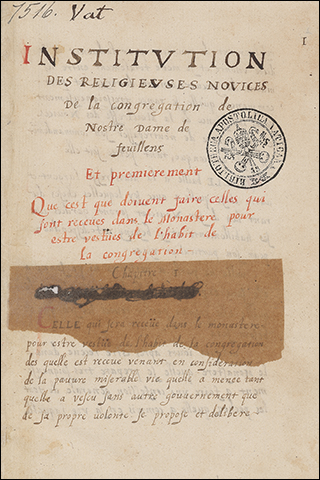 7516. Vat
1
INSTITVTION
DES RELIGIEVSES NOVICES
De la congregation de
Nostre Dame de
feuillens
Et premierement
Que cest que doiuent faire celles qui
sont receues dans le Monastere pour
estre vestües de l'habit de
la congregation -
Chapitre 1
CELLE qui sera receüe dans le monastere
pour estre vestüe de l'habit de la congregation
des quelle est receue venant en consideration
de la pauure miserable vie quelle a menee tant
quelle a vescu sans autre gouuernement que
de sa propre volonte se propose et delibere -
BIBLIOTHECA APOSTOLICA VATICANA